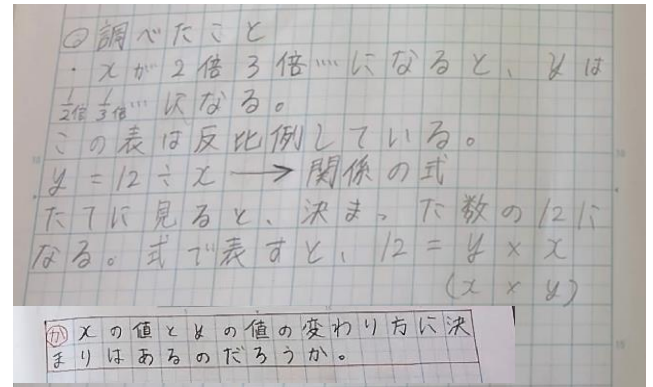 ◎調べたこと
・xが2倍3倍…になると、yは
1/2倍1/3倍…になる。
この表は反比例している。
y=12÷x→関係の式
たてに見ると、決まった数の12に
なる。式で表すと、12=y×x
(x×y)
㋕xの値とyの値の変わり方に決
まりはあるのだろうか。